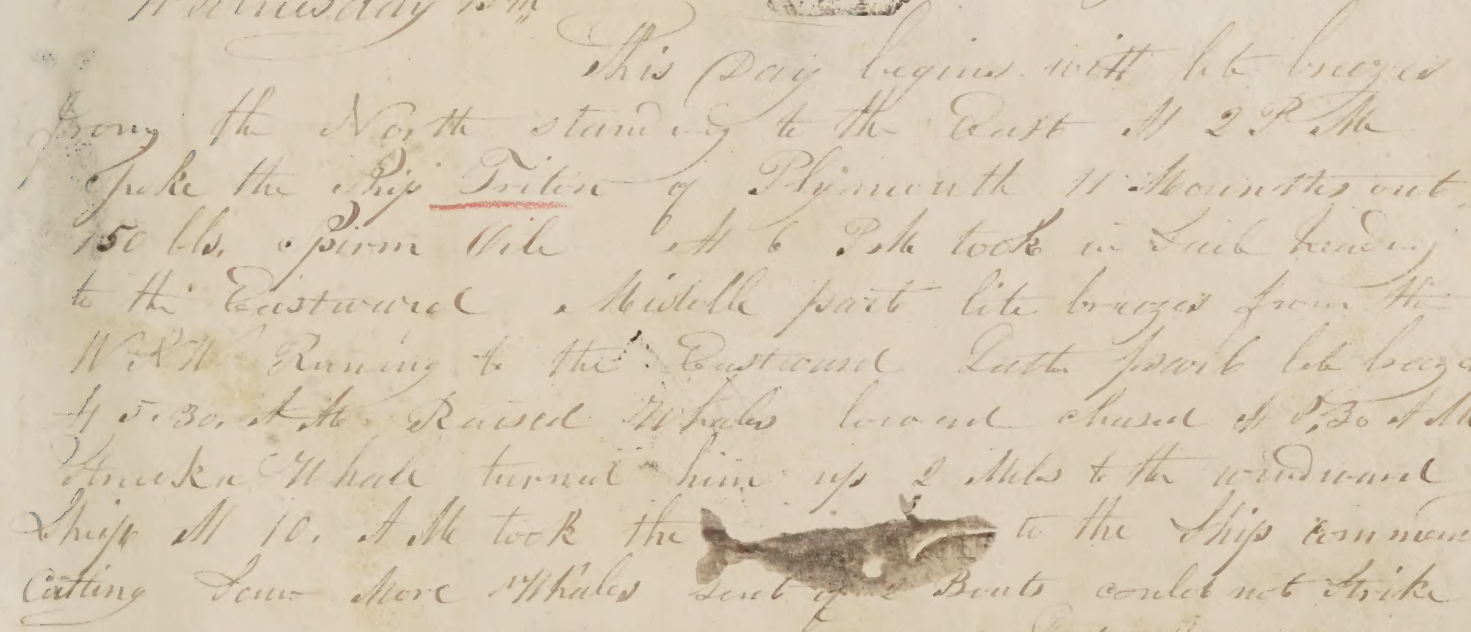 Wednesday 13th
This Day begins with lite breezes
from the North standing to the East At 2 P M
Spoke the Ship Triton of Plymouth 11 Mounths out
150 bls. Spirm Oile At 6 P M took in Sail heading
to the Eastward Middle part lite breezes from the
W N W Runing to the Eastward Latter part lite breeze
At 5.30. A M Raised Whales loward chased At 8.30 A M
Struck a Whale turned him up 2 Miles to the windward
Ship At 10. A M took the to the Ship commenc
Cutting Saw More Whales sent Boats could not Strike